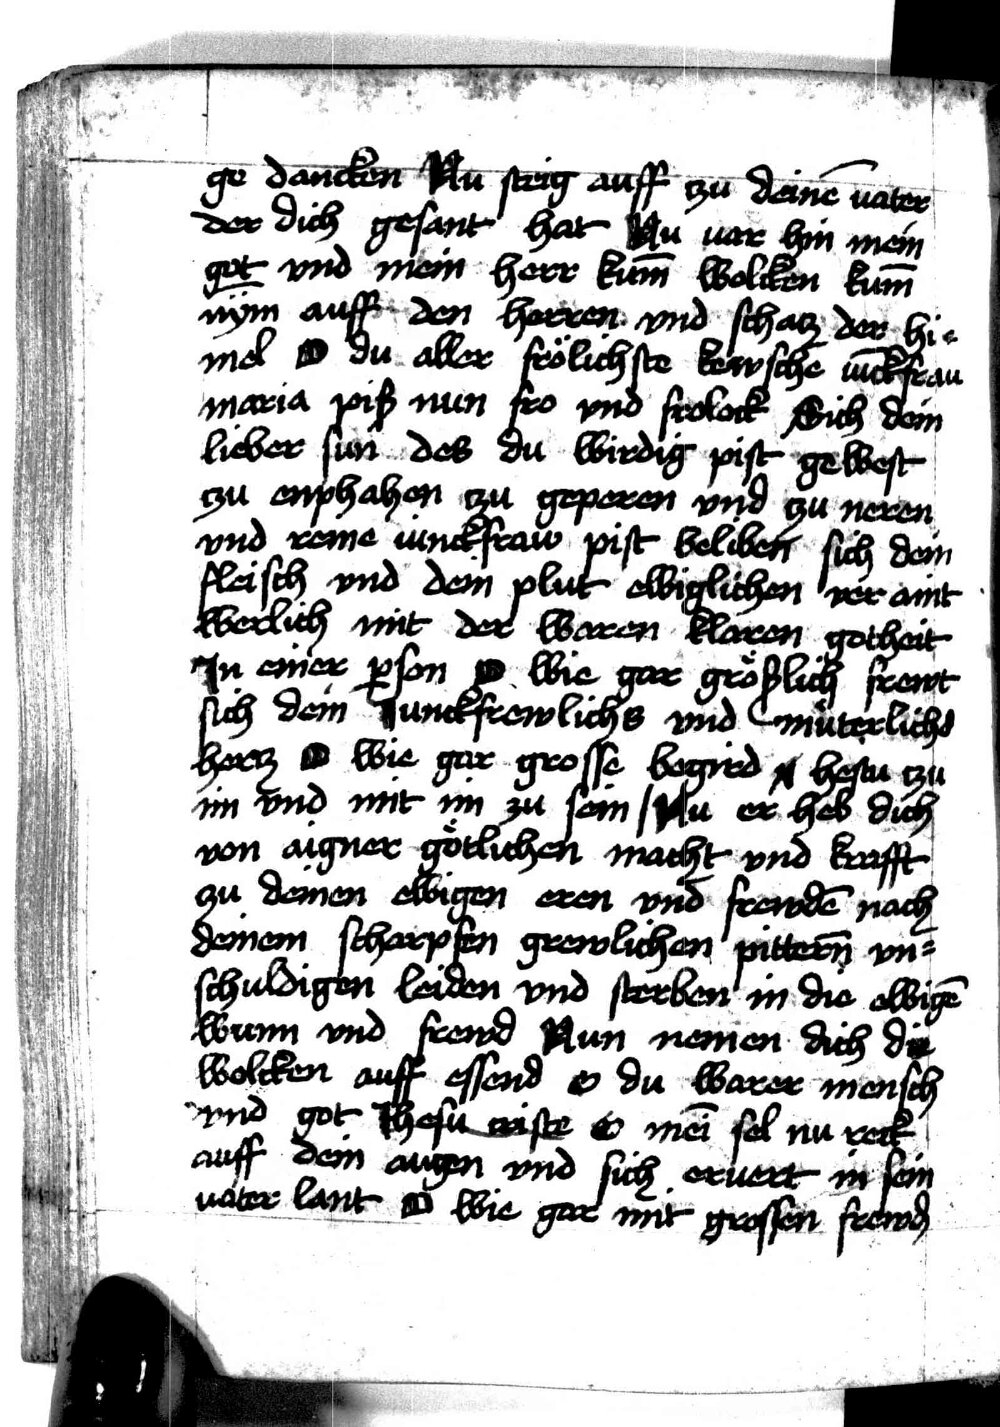 ge dancken Nu steig auff zu deinē vater
der dich gesant hat Nu var hin mein
got vnd mein herr kum̄ wolcken kum̄
nym auff den herren vnd schatz der hi-
mel O du aller frölichste kewsche iūckfrau
maria piß nun fro vnd frolock Sich dein
lieber sun des du wirdig pist gewest
zu enphahen zu geperen vnd zu neren
vnd reine iunckfraw pist beliben sich dein
fleisch vnd dein plut ewiglichen veraint
werlich mit der waren klaren gotheit
In einer ꝑson O wie gar größlich frewt
sich dein Iunckfrewlichs vnd müterlichs
hertz O wie gar grosse begird hestu zu
im vnd mit im zu sein / Nu er heb dich
von aigner götlichen macht vnd krafft
zu deinen ewigen eren vnd frewdē nach
deinem scharpfen grewlichen pittern̄ vn=
schuldigen leiden vnd sterben in die ewigē
wunn vnd frewd Nun nemen dich die
wolcken auff essend o du warer mensch
vnd got Ihesu criste o mei̅ sel nu reck
auff dein augen vnd sich ervert in sein
vater lant O wie gar mit grossen frewd